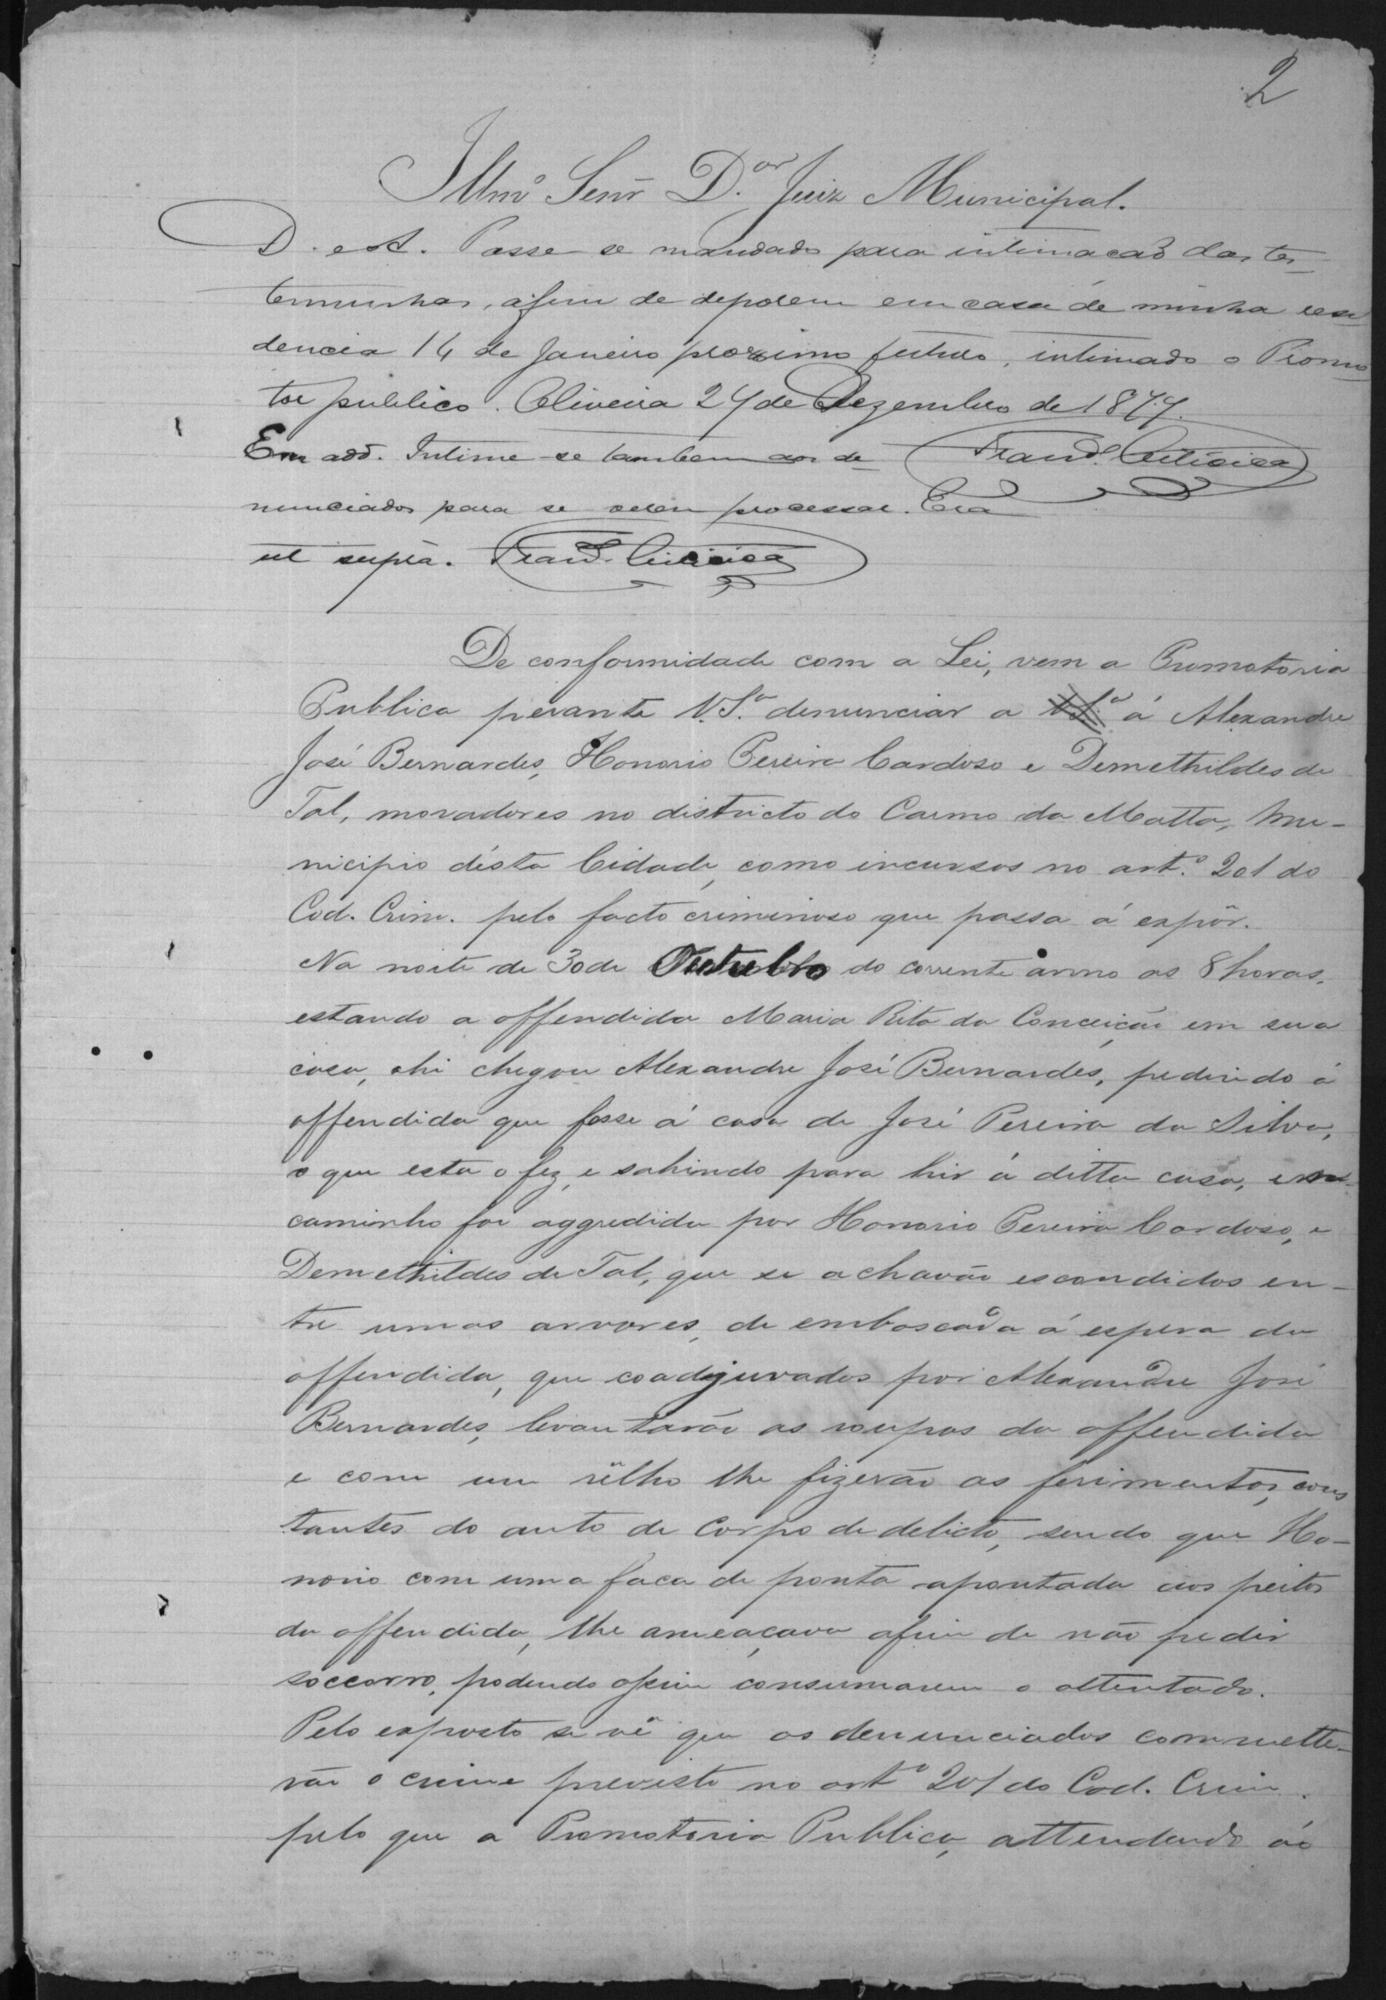 2
Illmº Senr̃ D.or Juiz Municipal.
D. e A. Passe se mandado para intimação das tes-
temunhas, afim de deporem em casa de minha resi
dencia 14 de Janeiro proximo futuro, intimado o Promo-
tor publico. Oliveira 24 de Dezembro de 1877.
Em add. Intime-se tambem aos de-
nunciados para se verem processar. Era
ut supra.
De conformidade com a Lei, vem a Promotoria
Publica perante V.S.ª denunciar a á Alexandre
José Bernardes, Honorio Pereira Cardoso e Demethildes de
Tal, moradores no districto do Carmo da Matta, Mu-
nicipio désta Cidade, como incursos no art.º 201 do
Cod. Crim. pelo facto criminoso que passa á expôr.
Na noite de 30 de Outubro do corrente anno as 8 horas,
estando a offendida Maria Rita da Conceição em sua
casa, ahi chegou Alexandre José Bernardes, pedindo á
offendida que fosse á casa de José Pereira da Silva,
o que esta o fez, e sahindo para hir á ditta casa, em
caminho foi aggredida por Honorio Pereira Cardoso, e
Demethildes de Tal, que se achavão escondidos en-
tre umas arvores, de emboscada á espera da
offendida, que coadjuvados por Alexandre José
Bernardes, levantarão as roupas da offendida
e com um rêlho lhe fizerão os ferimentos, cons
tantes do auto de Corpo de delicto, sendo que Ho-
norio com uma faca de ponta apontada aos peitos
da offendida, lhe ameaçava afim de não pedir
soccorro, podendo assim consumarem o attentado.
Pelo exposto se vê que os denunciados commette-
rão o crime previsto no art.º 201 do Cod. Crim.
pelo que a Promotoria Publica, attendendo ao